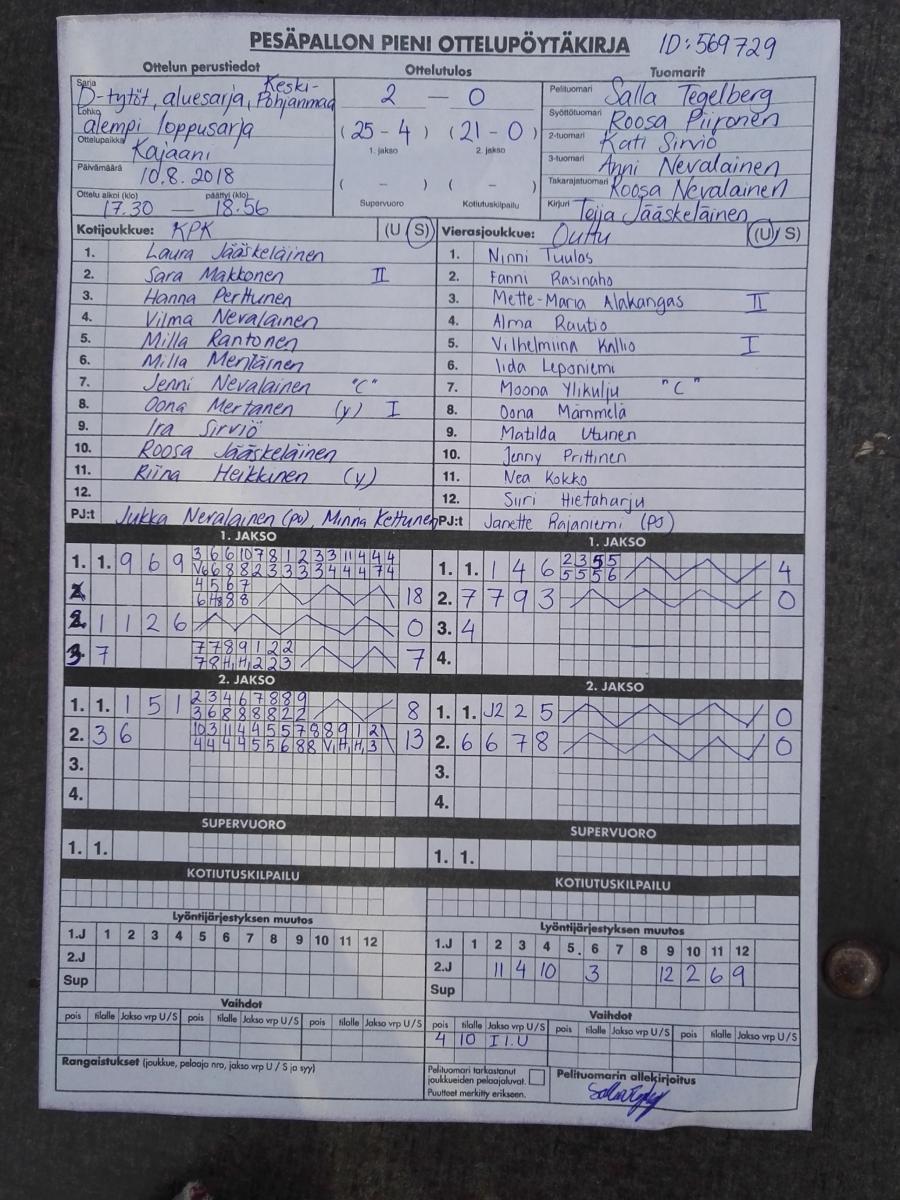 PESÄPALLON PIENI OTTELUPÖYTÄKIRJA ID:569729
Ottelun perustiedot Ottelutulos Tuomarit
Sarja D-tytöt, aluesarja, Keski-Pohjanmaa
Lohko alempi loppusarja
Ottelupaikka Kajaani
Päivämäärä 10.8.2018
Ottelu alkoi (klo) päättyi (klo)
17.30 — 18.56
2 — 0
(25-4) (21-0)
1. jakso 2. jakso
( - ) ( - )
Supervuoro Kotiutuskilpailu
Pelituomari Salla Tegelberg
Syöttötuomari Roosa Piironen
2-tuomari Kati Sirviö
3-tuomari Anni Nevalainen
Takarajatuomari Roosa Nevalainen
Kirjuri Teija Jääskeläinen
Kotijoukkue: KPK (U/S)
1. Laura Jääskeläinen
2. Sara Makkonen II
3. Hanna Perttunen
4. Vilma Nevalainen
5. Milla Rantonen
6. Milla Mentäinen
7. Jenni Nevalainen "C"
8. Oona Mertanen (y) I
9. Ira Sirviö
10. Roosa Jääskeläinen
11. Riina Heikkinen (y)
12.
PJ:t Jukka Nevalainen (po), Minna Kettunen
Vierasjoukkue: Outtu (U/S)
1. Ninni Tuulos
2. Fanni Rasinaho
3. Mette-Maria Alakangas II
4. Alma Rautio
5. Vilhelmiina Kallio I
6. Iida Leponiemi
7. Moona Ylikulju "C"
8. Oona Mämmelä
9. Matilda Utunen
10. Jenny Prittinen
11. Nea Kokko
12. Siiri Hietaharju
PJ:t Janette Rajaniemi (PO)
1. JAKSO
1. 1. 9 6 9 3 6 6 10 7 8 1 2 3 3 11 4 4 4
V6 6 8 8 2 3 3 3 3 4 4 4 7 4
4 5 6 7
6 H 8 8 18
2. 1 1 2 6 0
3. 7 7 7 8 9 1 2 2
7 8 H, H, 2 2 3 7
1. JAKSO
1. 1. 1 4 6 2 3 5 5
5 5 5 6 4
2. 7 7 9 3 0
3. 4
4.
2. JAKSO
1. 1. 1 5 1 2 3 4 6 7 8 8 9
3 6 8 8 8 8 2 2 8
2. 3 6 10 3 11 4 4 5 5 7 8 8 9 1 2
4 4 4 4 5 5 6 8 8 V, H, H, 3 13
3.
4.
2. JAKSO
1. 1. J2 2 5 0
2. 6 6 7 8 0
3.
4.
SUPERVUORO
1. 1.
SUPERVUORO
1. 1.
KOTIUTUSKILPAILU
KOTIUTUSKILPAILU
Lyöntijärjestyksen muutos
1.J 1 2 3 4 5 6 7 8 9 10 11 12
2.J
Sup
Lyöntijärjestyksen muutos
1.J 1 2 3 4 5. 6 7 8 9 10 11 12
2.J 11 4 10 3 12 2 6 9
Sup
Vaihdot
pois tilalle Jakso vrp U/S pois tilalle Jakso vrp U/S pois tilalle Jakso vrp U/S
Vaihdot
pois tilalle Jakso vrp U/S pois tilalle Jakso vrp U/S pois tilalle Jakso vrp U/S
4 10 I 1.U
Rangaistukset (joukkue, pelaaja nro, jakso vrp U / S ja syy)
Pelituomari tarkastanut
joukkueiden pelaajaluvat.
Puutteet merkitty erikseen.
Pelituomarin allekirjoitus